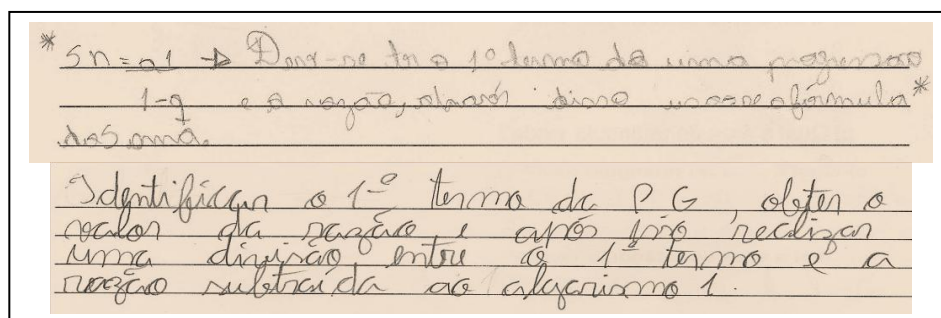 * Sn = a1 → Deve-se ter o 1º termo da uma progressão
1-q e a razão, através disso usasse a fórmula *
da Soma.
Identificar o 1º termo da PG, obter o
valor da razão e após isso realizar
uma divisão entre o 1º termo e a
razão subtraída ao algarismo 1.